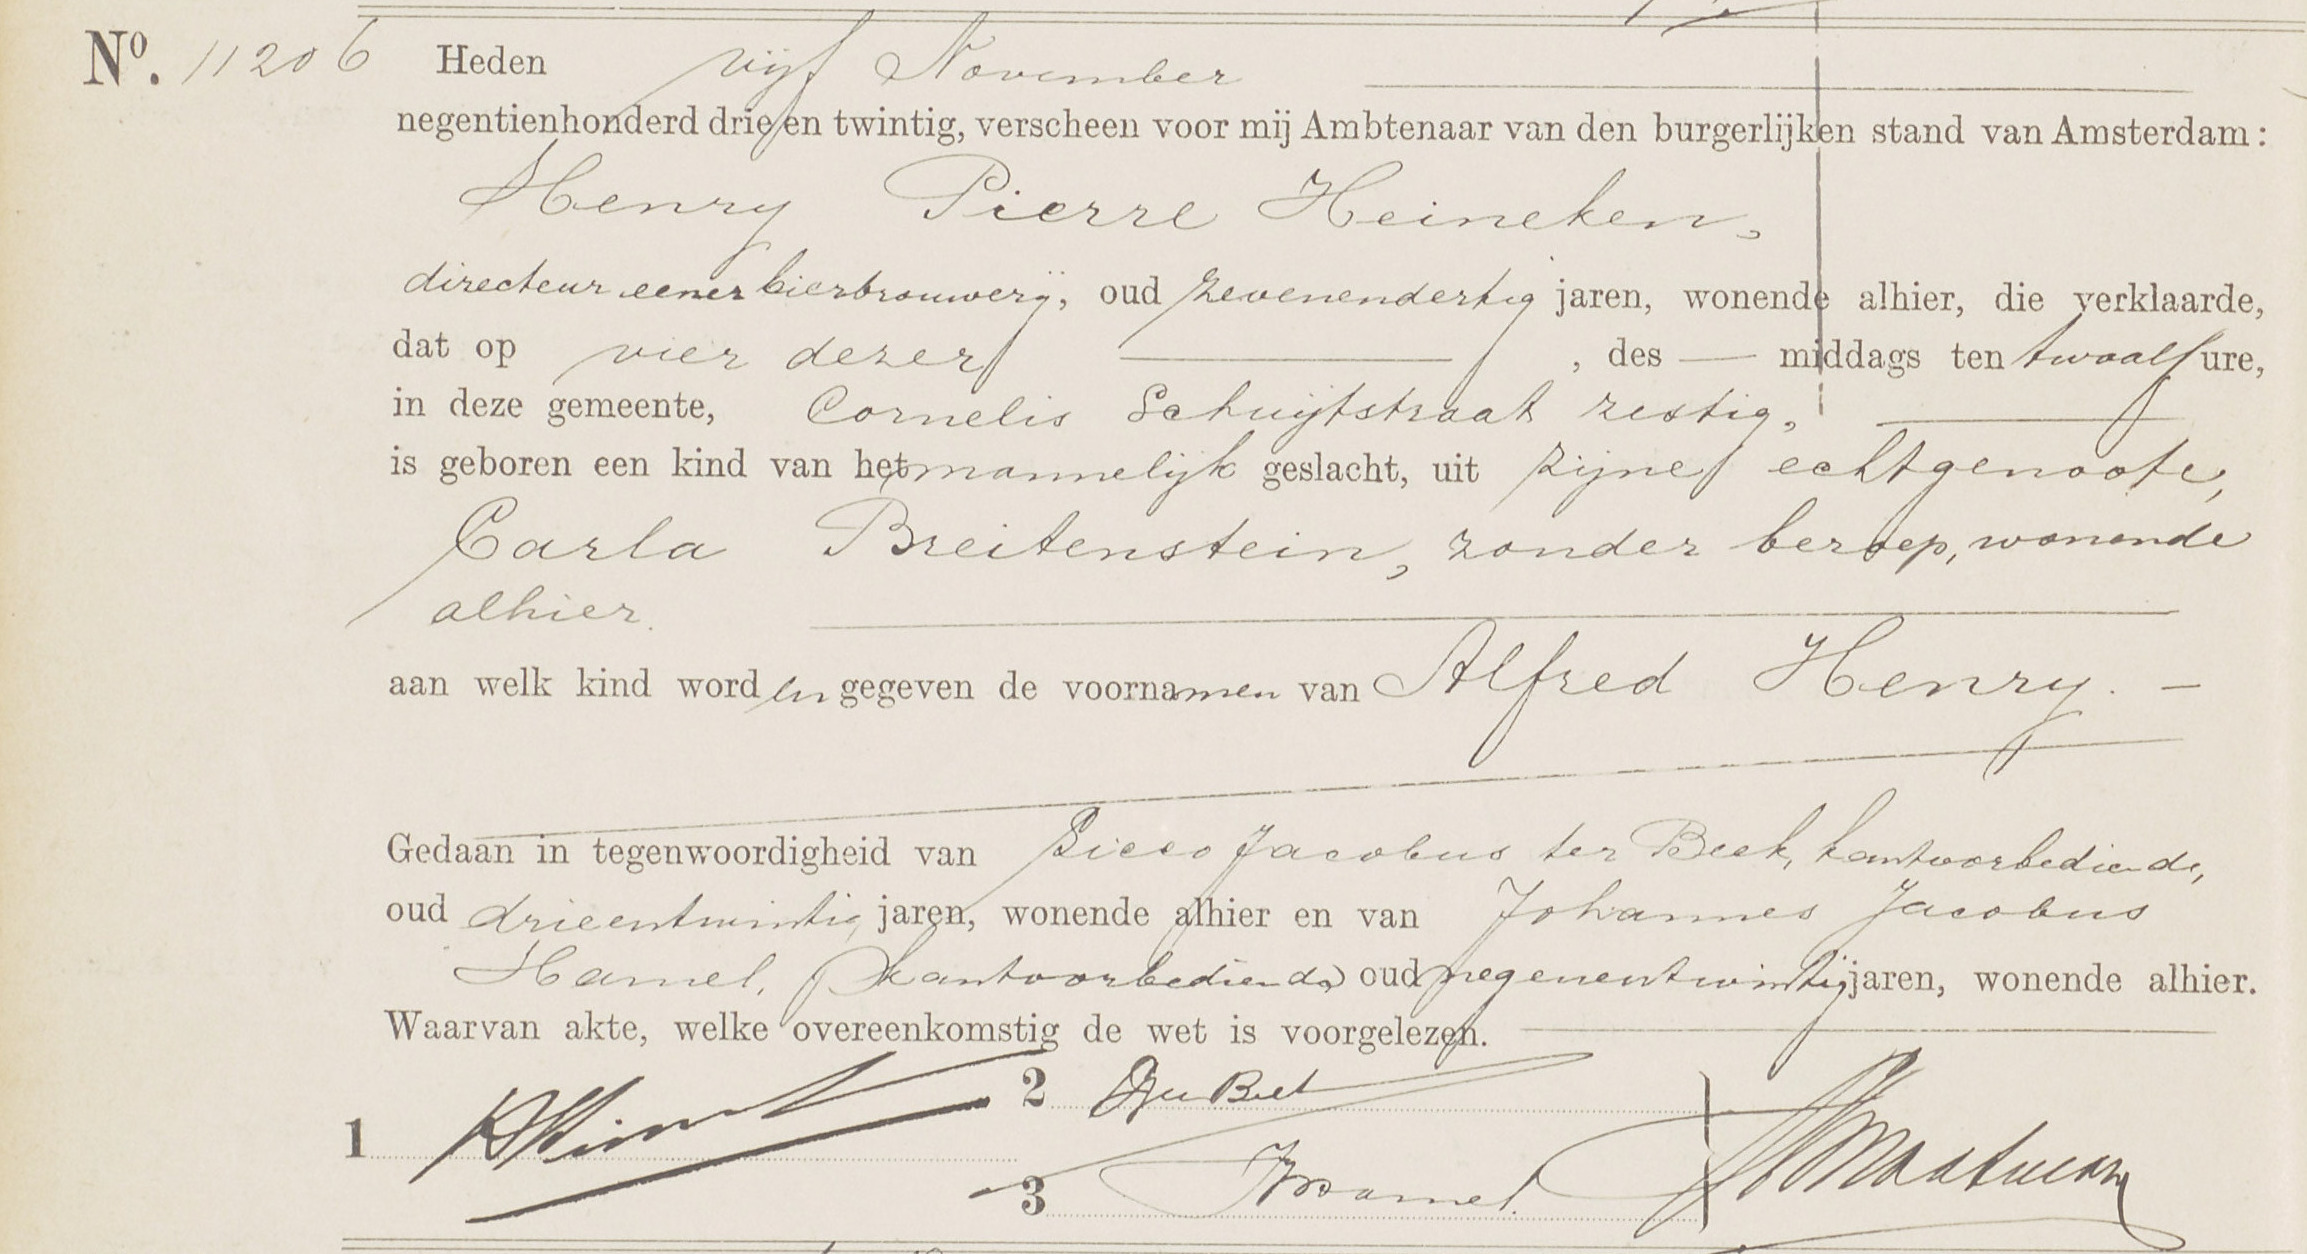 No. 11206 Heden vijf November
negentienhonderd drie en twintig, verscheen voor mij Ambtenaar van den burgerlijken stand van Amsterdam:
Henry Pierre Heineken,
directeur eener bierbrouwerij, oud zevenendertig jaren, wonende alhier, die verklaarde,
dat op vier dezer , des — middags ten twaalf ure,
in deze gemeente, Cornelis Schuijtstraat zestig,
is geboren een kind van het mannelijk geslacht, uit zijne echtgenoote,
Carla Breitenstein, zonder beroep, wonende
alhier.
aan welk kind worden gegeven de voornamen van Alfred Henry. —
Gedaan in tegenwoordigheid van Sicco Jacobus ter Beek, kantoorbediende,
oud drieentwintig jaren, wonende alhier en van Johannes Jacobus
Hamel, kantoorbediende oud negenentwintig jaren, wonende alhier.
Waarvan akte, welke overeenkomstig de wet is voorgelezen.
1
2
3